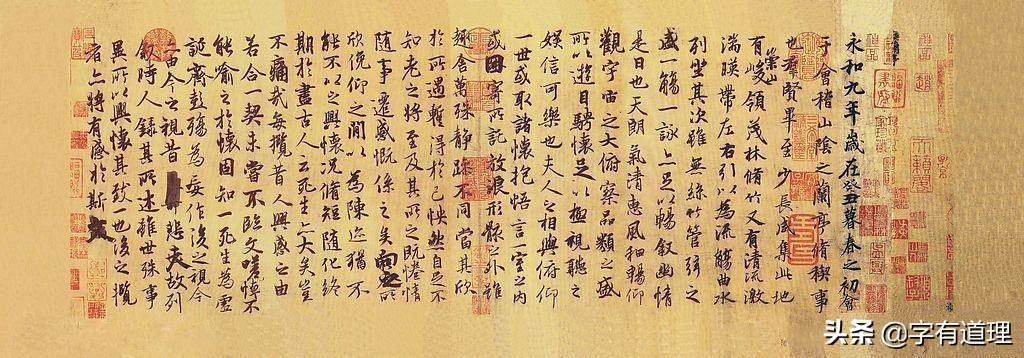 永和九年歲在癸丑暮春之初會
于會稽山陰之蘭亭脩稧事
也羣賢畢至少長咸集此地
有崇山峻領茂林脩竹又有清流激
湍暎帶左右引以為流觴曲水
列坐其次雖無絲竹管弦之
盛一觴一詠亦足以暢敘幽情
是日也天朗氣清惠風和暢仰
觀宇宙之大俯察品類之盛
所以遊目騁懷足以極視聽之
娛信可樂也夫人之相與俯仰
一世或取諸懷抱悟言一室之內
或因寄所託放浪形骸之外雖
趣舍萬殊靜躁不同當其欣
於所遇暫得於己怏然自足不
知老之將至及其所之既惓情
隨事遷感慨係之矣向之所
欣俛仰之閒以為陳迹猶不
能不以之興懷況脩短隨化終
期於盡古人云死生亦大矣豈
不痛哉每攬昔人興感之由
若合一契未嘗不臨文嗟悼不
能喻之於懷固知一死生為虛
誕齊彭殤為妄作後之視今
亦由今之視昔悲夫故列
敘時人錄其所述雖世殊事
異所以興懷其致一也後之攬
者亦將有感於斯文
头条 @字有道理